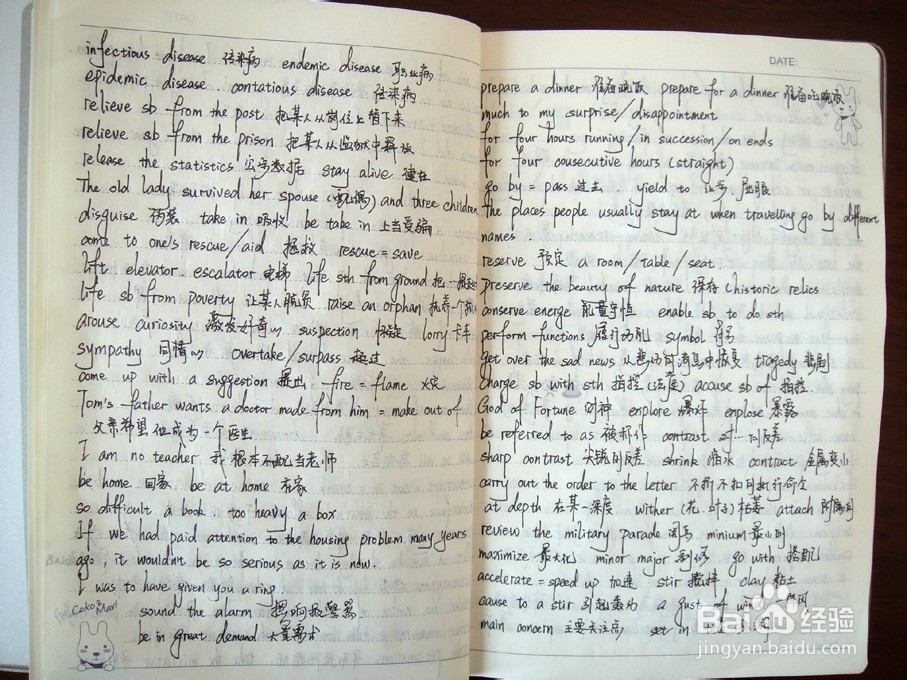 infectious disease 传染病 endemic disease 职业病
epidemic disease . contatious disease 传染病
relieve sb from the post 把某人从岗位上替下来
relieve sb from the prison 把某人从监狱中释放
release the statistics 公布数据 stay alive 健在
The old lady survived her spouse (配偶) and three children
disguise 伪装 take in 吸收 be take in 上当受骗
come to one's rescue/aid 拯救 rescue = save
lift elevator . escalator 电梯 life sth from ground 把一提起
life sb from poverty 让某人脱贫 raise an orphan 抚养一个孤
arouse curiosity 激发好奇心 suspection lorry 卡车
sympathy 同情心 overtake/surpass 超过
come up with a suggestion 提出 fire = flame 火焰
Tom's father wants a doctor made from him = make out of
父亲希望他成为一个医生
I am no teacher 我根本不配当老师
be home 回家 be at home 在家
so difficult a book . too heavy a box
If we had paid attention to the housing problem many years
ago , it wouldn't be so serious as it is now.
I was to have given you a ring.
sound the alarm 拉响报警器
be in great demand 大量需求
Coko Mavi
DATE:
prepare a dinner 准备晚饭 prepare for a dinner 准备吃晚饭
much to my surprise/disappointment
for four hours running/in succession/on ends
for four cousecutive hours (straight)
go by = pass 过去 . yield to 让步, 屈服
The places people usually stay at when travelling go by different
names .
reserve 预定 a room/table/seat.
preserve the beauty of nature 保存 (historic relics
conserve energe 能量守恒 enable sb to do sth
perform functions 履行功能 symbol 符号
get over the sad news 从悲伤的消息中恢复 tragedy 悲剧
charge sb with sth 指控 (法庭) accuse sb of 指控.
God of Fortune 财神 enplore 爆炸 enplose 暴露
be referred to as 被称作 contrast 对…的反差
sharp contrast 尖锐的反差 shrink 缩水 contract 金属变小
carry out the order to the letter 不折不扣的执行命令
at depth 在某一深度 wither (花、叶子) 枯萎 attach 附属的
review the military parade 阅兵 minium 最小的
maximize 最大化 minor major 辅修 go with 搭配
accelerate = speed up 加速 stir 搅拌 clay 黏土
cause to a stir 引起轰动 a gust of win
main concern 主要关注点 set in
Baidu 经验
jingyan.baidu.com